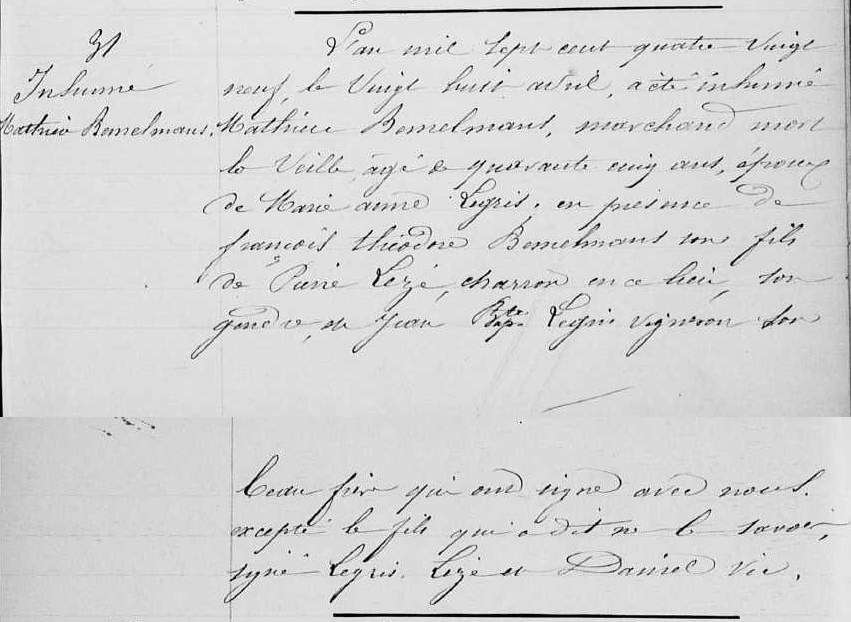 31
Inhumé
Mathieu Bemelmans.
L'an mil sept cent quatre vingt
neuf, le Vingt huit avril, a été inhumé
Mathieu Bemelmans, marchand mort
la Veille, âgé de quarante cinq ans, époux
de Marie anne Legris, en présence de
françois théodore Bemelmans son fils
de Pierre Lezé, charron en ce lieu, son
gendre, de Jean Bapte Legris vigneron son
beau frère qui ont signé avec nous.
excepté le fils qui a dit ne le savoir,
signé Legris. Lezé et Daniel Vic.